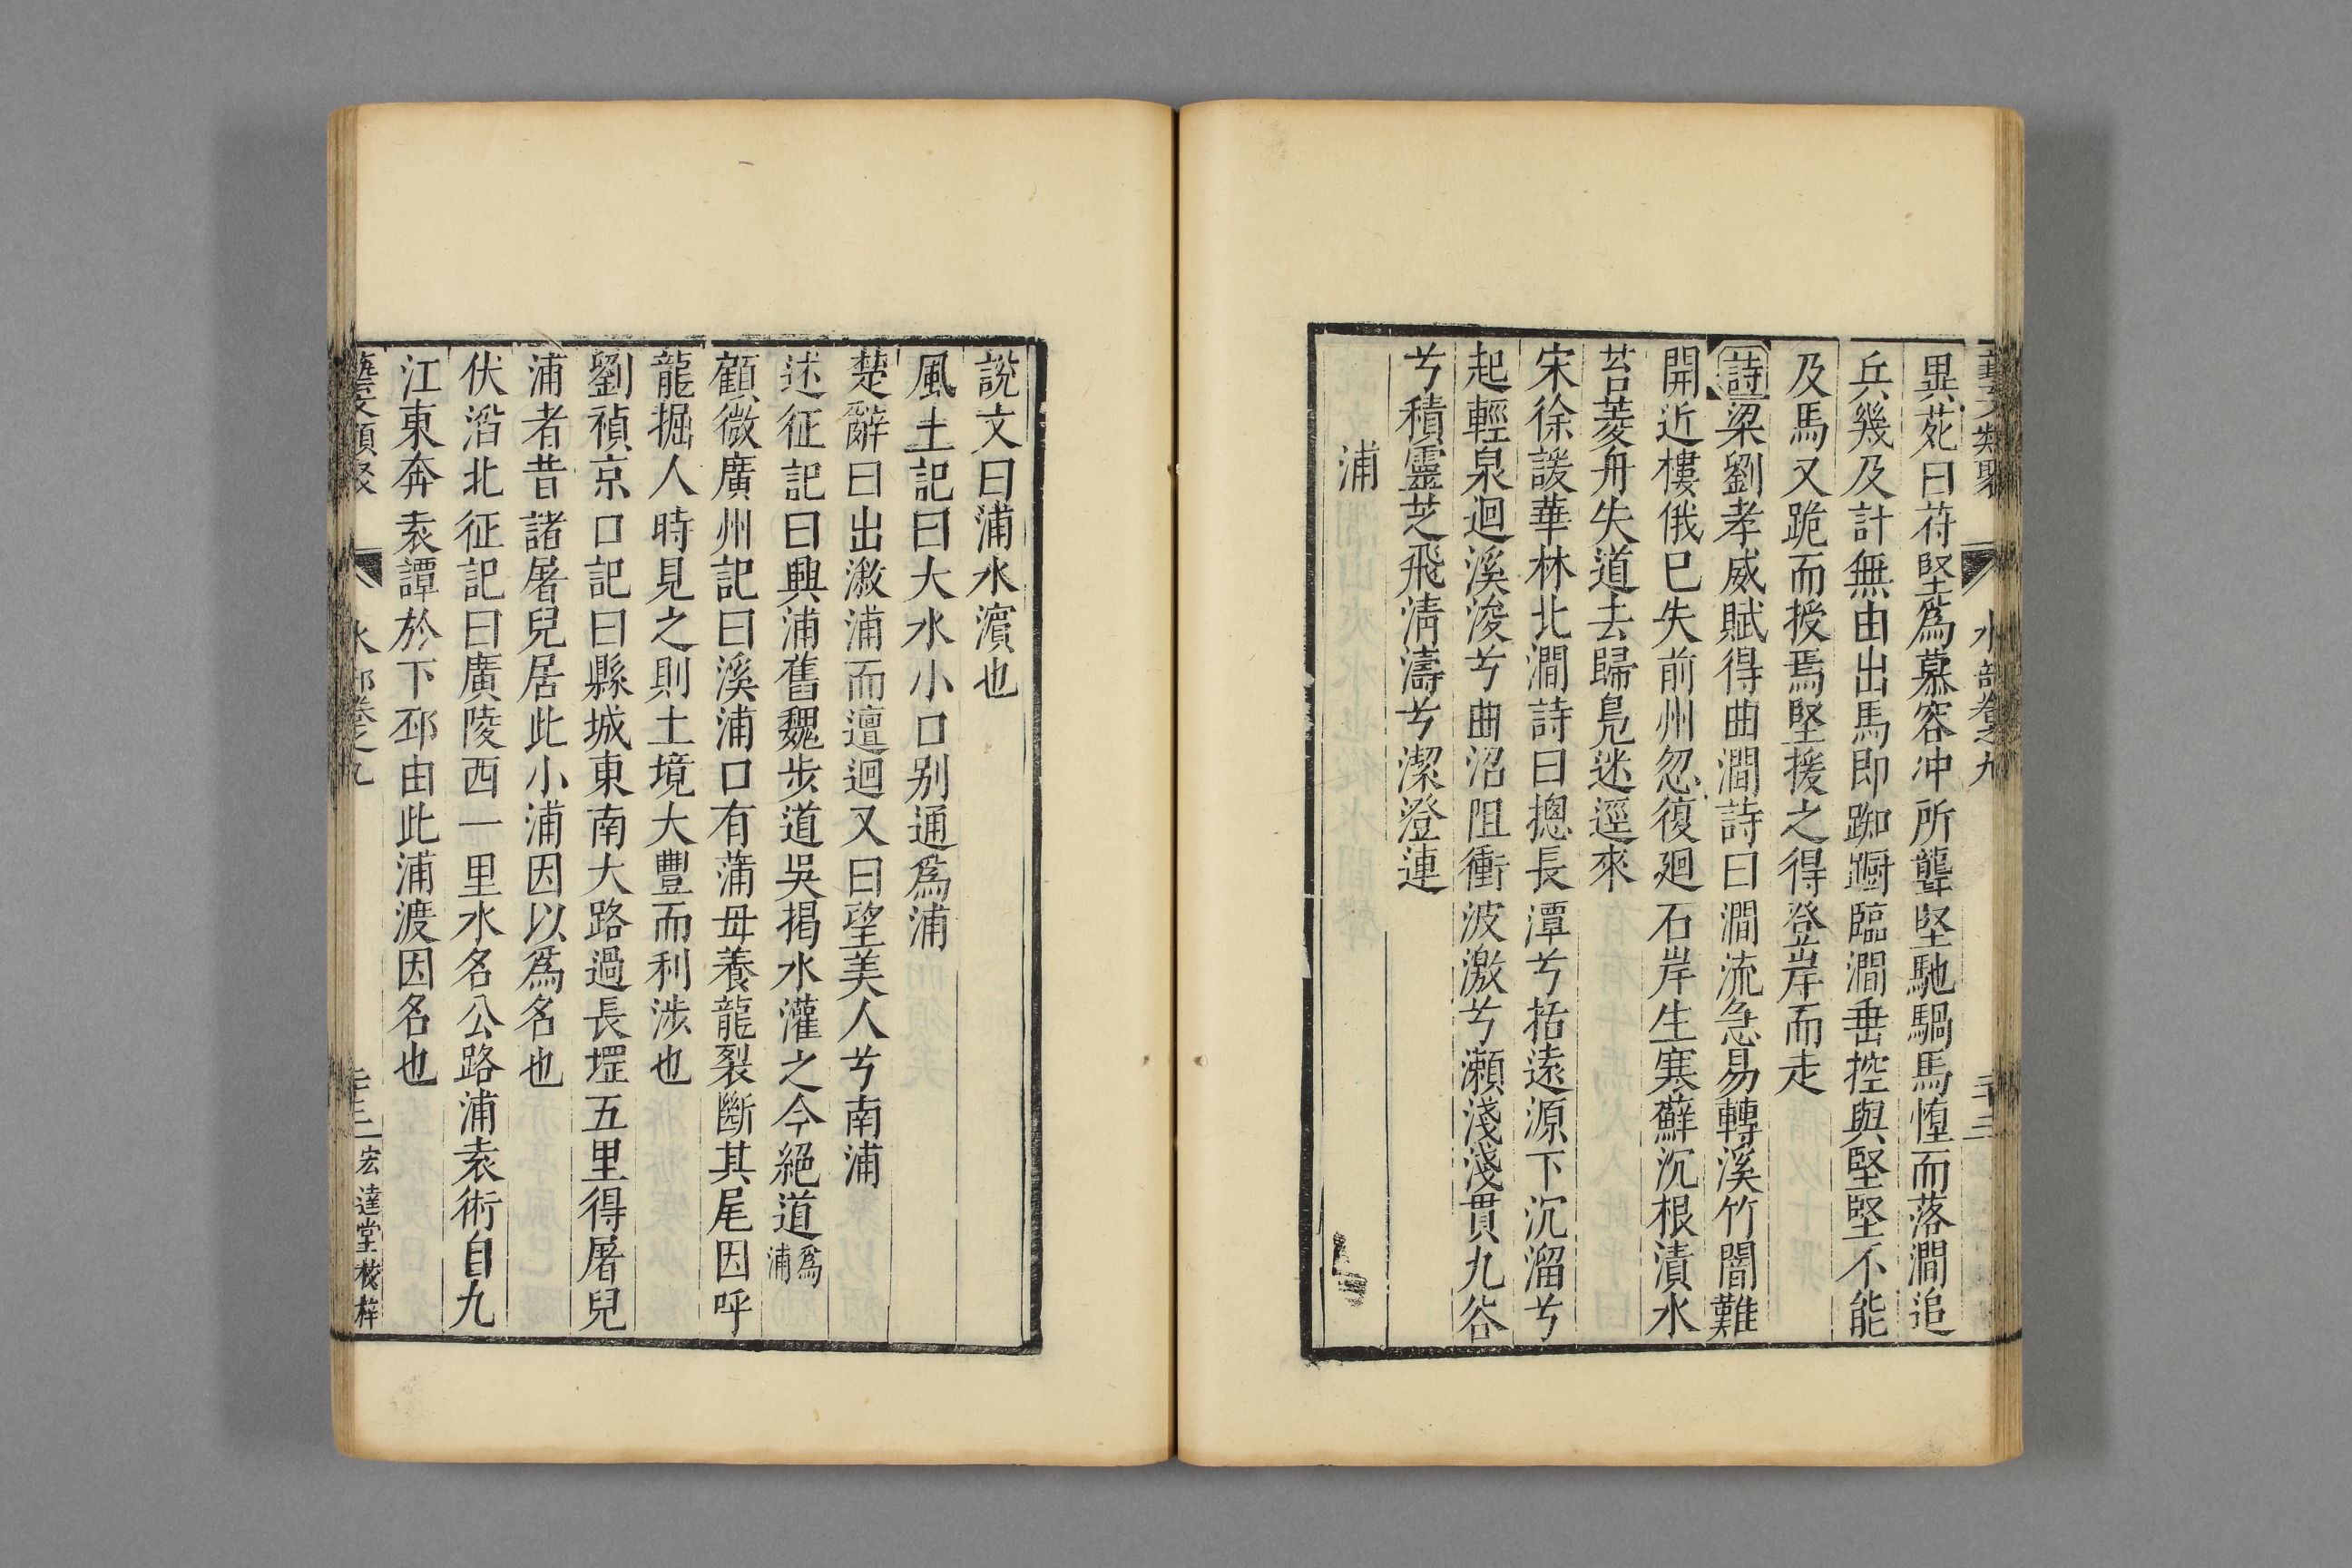 藝文類聚 水部卷之九 二十三
異苑曰苻堅爲慕容冲所襲堅馳騧馬惰而落澗追
兵幾及計無由出馬即踟蹰臨澗垂控與堅堅不能
及馬又跪而授焉堅援之得登岸而走
詩梁劉孝威賦得曲澗詩曰澗流急易轉溪竹闇難
開近樓俄已失前州忽復廻石岸生寒蘚沉根漬水
苔菱舟失道去歸鳧迷逕來
宋徐諼華林北澗詩曰摠長潭兮括遠源下沉溜兮
起輕泉迴溪浚兮曲沼阻衝波激兮瀨淺淺貫九谷
兮積靈芝飛淸濤兮潔澄連
浦
說文曰浦水濵也
風土記曰大水小口别通爲浦
楚辭曰出溆浦而邅迴又曰望美人兮南浦
述征記曰興浦舊魏步道吳揭水灌之今絕道爲浦
顧微廣州記曰溪浦口有蒲毋養龍裂斷其尾因呼
龍掘人時見之則土境大豐而利涉也
劉禎京口記曰縣城東南大路過長堽五里得屠兒
浦者昔諸屠兒居此小浦因以爲名也
伏滔北征記曰廣陵西一里水名公路浦袁術自九
江東奔袁譚於下邳由此浦渡因名也
藝文類聚 水部卷之九 二十三 宏達堂校梓